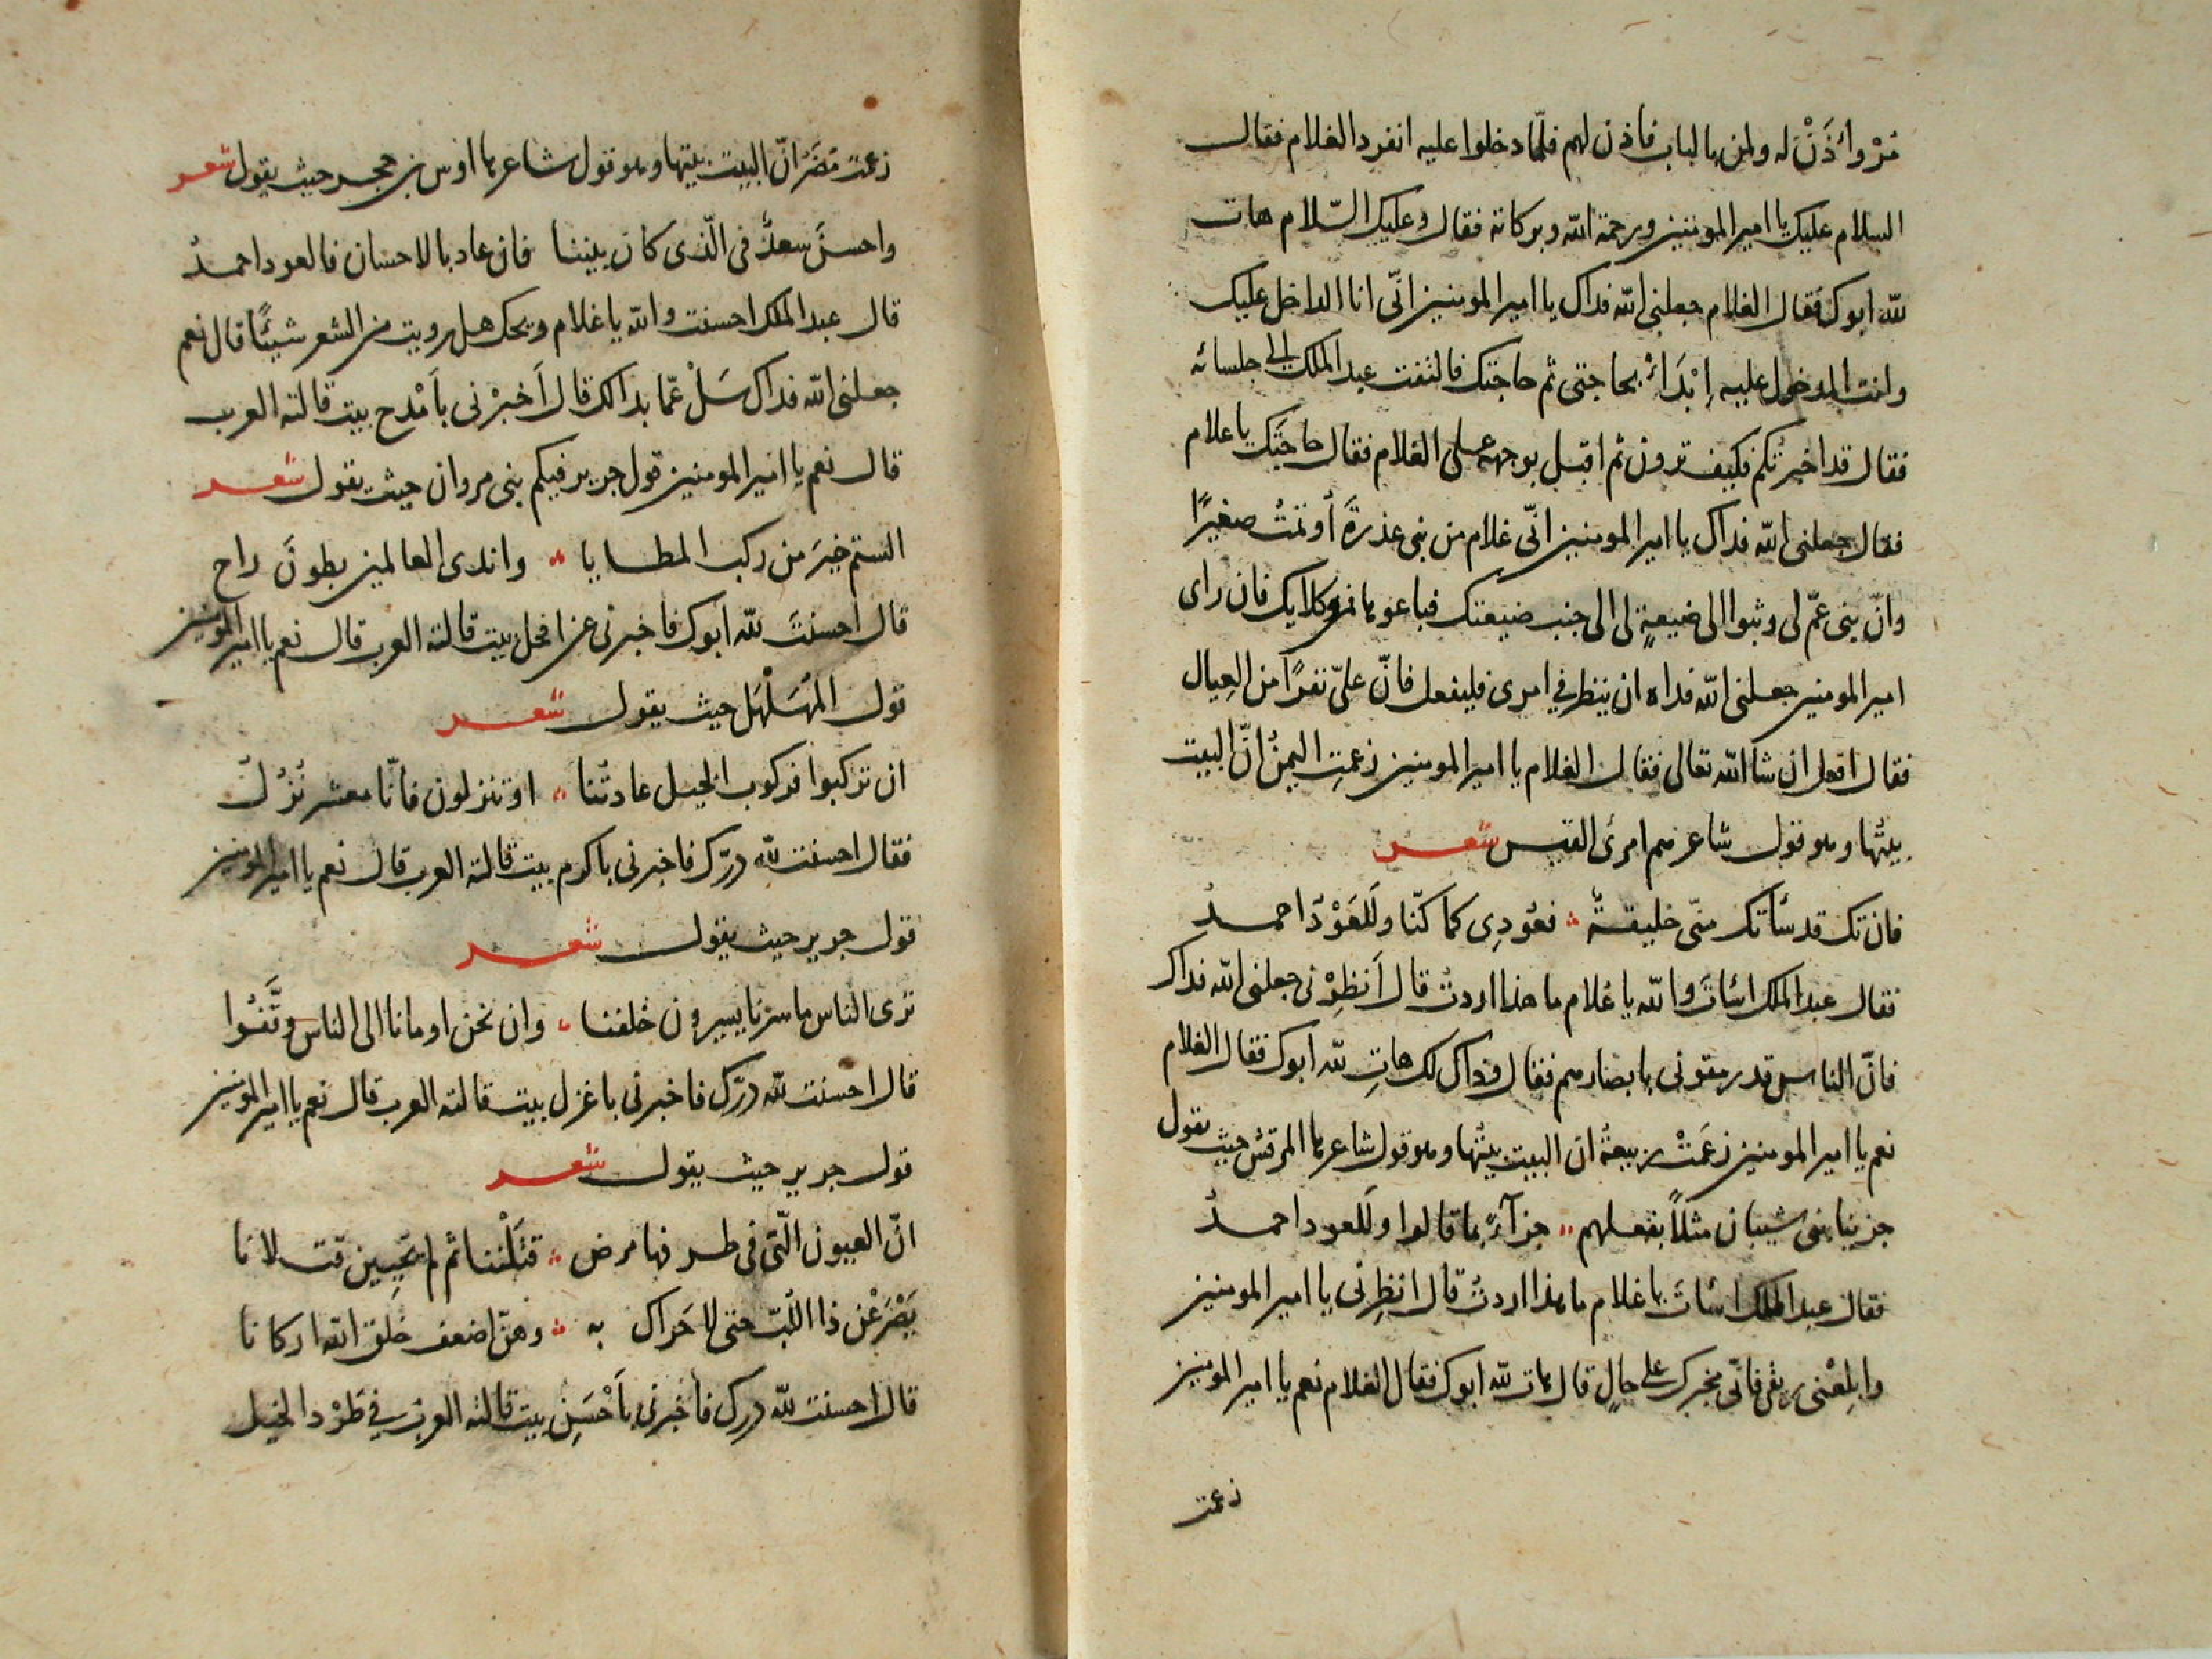 مُرْ وأْذَنْ له ولمن بالباب فاذن لهم فلمّا دخلوا عليه انفرد الغلام فقال
السلام عليك يا امير المومنين ورحمة الله وبركاته فقال وعليك السّلام هات
لله ابوك فقال الغلام جعلنى الله فداك يا امير المومنين انّى انا الداخل عليك
وانت المدخول عليه اِبْدَأْ بحاجتى ثم حاجتك فالتفت عبد الملك الى جلسائه
فقال قد اخبرتُكم فكيف ترون ثم اقبل بوجهه على الغلام فقال حاجتَك يا غلام
فقال جعلنى الله فداك يا امير المومنين انّى غلام من بنى عذرةَ أُوتِمْتُ صغيرًا
وانّ بنى عمّ لى وثبوا الى ضيعةٍ لى الى جنب ضيعتك فباعوها من وكلايك فان راى
امير المومنين جعلنى الله فداه ان ينظر في امرى فليفعل فانّ علىّ نفرًا من العِيال
فقال افعل ان شا الله تعالى فقال الغلام يا امير المومنين زعمتِ اليمنُ انّ البيت
بيتُها وهو قول شاعرهم امرئ القيس شعر
فان تك قد سأتك منّى خليقةٌ فعُودِى كما كنّا ولَلعَوْدُ احمدُ
فقال عبد الملك اسَأتَ والله يا غلام ما هذا اردتُ قال اَنظِرْنى جعلنى الله فداك
فانّ الناس قد رمقونى بابصارهم فقال وذاك لك هاتِ لله ابوك فقال الغلام
نعم يا امير المومنين زعَمَتْ ربيعةُ ان البيت بيتُها وهو قول شاعرها المرقش حيث يقول
جزينا بنى شيبان مثلاً بفعلهم جزآءً بما قالوا ولَلعود احمدُ
فقال عبد الملك اسَأتَ يا غلام ما هذا اردتُ قال انظِرنى يا امير المومنين
وابلِعْنى ريقى فانّى مخبرك على حالٍ قال هات لله ابوك فقال الغلام نعم يا امير المومنين
زعمت
زعمت مُضَرُ انّ البيت بيتها وهو قول شاعرها اوس بن حجر حيث يقول شعر
واحسنَ سعدٌ فى الّذى كان بيننا فان عاد بالاحسان فالعود احمدُ
قال عبد الملك احسنت والله يا غلام ويحك هل رويت من الشعر شيئًا قال نعم
جعلنى الله فداك سَلْ عمّا بدا لك قال اَخبرْنى باَمْدح بيت قالته العرب
قال نعم يا امير المومنين قول جرير فيكم بنى مروان حيث يقول شعر
الستم خيرَ من ركب المطايا واندى العالمين بطونَ راح
قال احسنتَ لله ابوك فاخبرنى عن افحل بيت قالته العرب قال نعم يا امير المومنين
قول المُهَلْهَل حيث يقول شعر
ان تركبوا فركوب الخيل عادتُنا او تنزلون فانّا معشر نُزُلُ
فقال احسنت لله درّك فاخبرنى باكرم بيت قالته العرب قال نعم يا امير المومنين
قول جرير حيث يقول شعر
ترى الناس ما سرنا يسيرون خلفنا وان نحن اومانا الى الناس وقَّفُوا
قال احسنت لله درّك فاخبرنى باغزل بيت قالته العرب قال نعم يا امير المومنين
قول جرير حيث يقول شعر
انّ العيون الّتى فى طرفها مرض قتَلْننا ثم لم يُحيِين قتلانا
يَصْرَعْن ذا اللُبّ حتى لا حَراك به وهنّ اضعف خلق الله اركانا
قال احسنت لله درك فاخبرنى باَحْسَنِ بيت قالته العرب في طَرْد الخيل